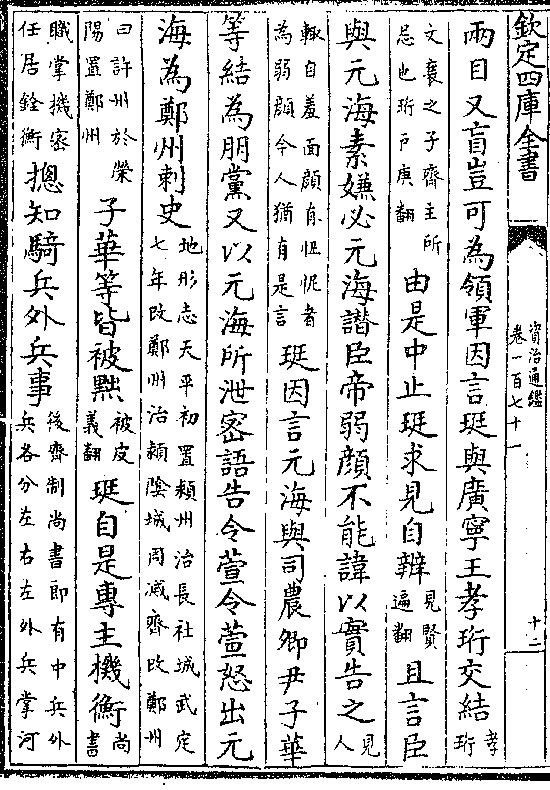 欽定四庫全書
資治通鑑
卷一百七十一
十二
兩目又盲豈可為領軍因言珽與廣寧王孝珩交結孝珩
文襄之子齊主所忌也珩戸庚翻由是中止珽求見自辨見賢遍翻且言臣
與元海素嫌必元海譖臣帝弱顔不能諱以實告之見人
輙自羞面顔有忸怩者為弱顔今人猶有是言珽因言元海與司農卿尹子華
等結為朋黨又以元海所泄密語告令萱令萱怒出元
海為鄭州刺史地形志天平初置潁州治長社城武定七年改鄭州治潁陰城周滅齊改鄭州
曰許州於滎陽置鄭州子華等皆被黜被皮義翻珽自是專主機衡尚書
職掌機密任居銓衡摠知騎兵外兵事後齊制尚書郎有中兵外兵各分左右左外兵掌河